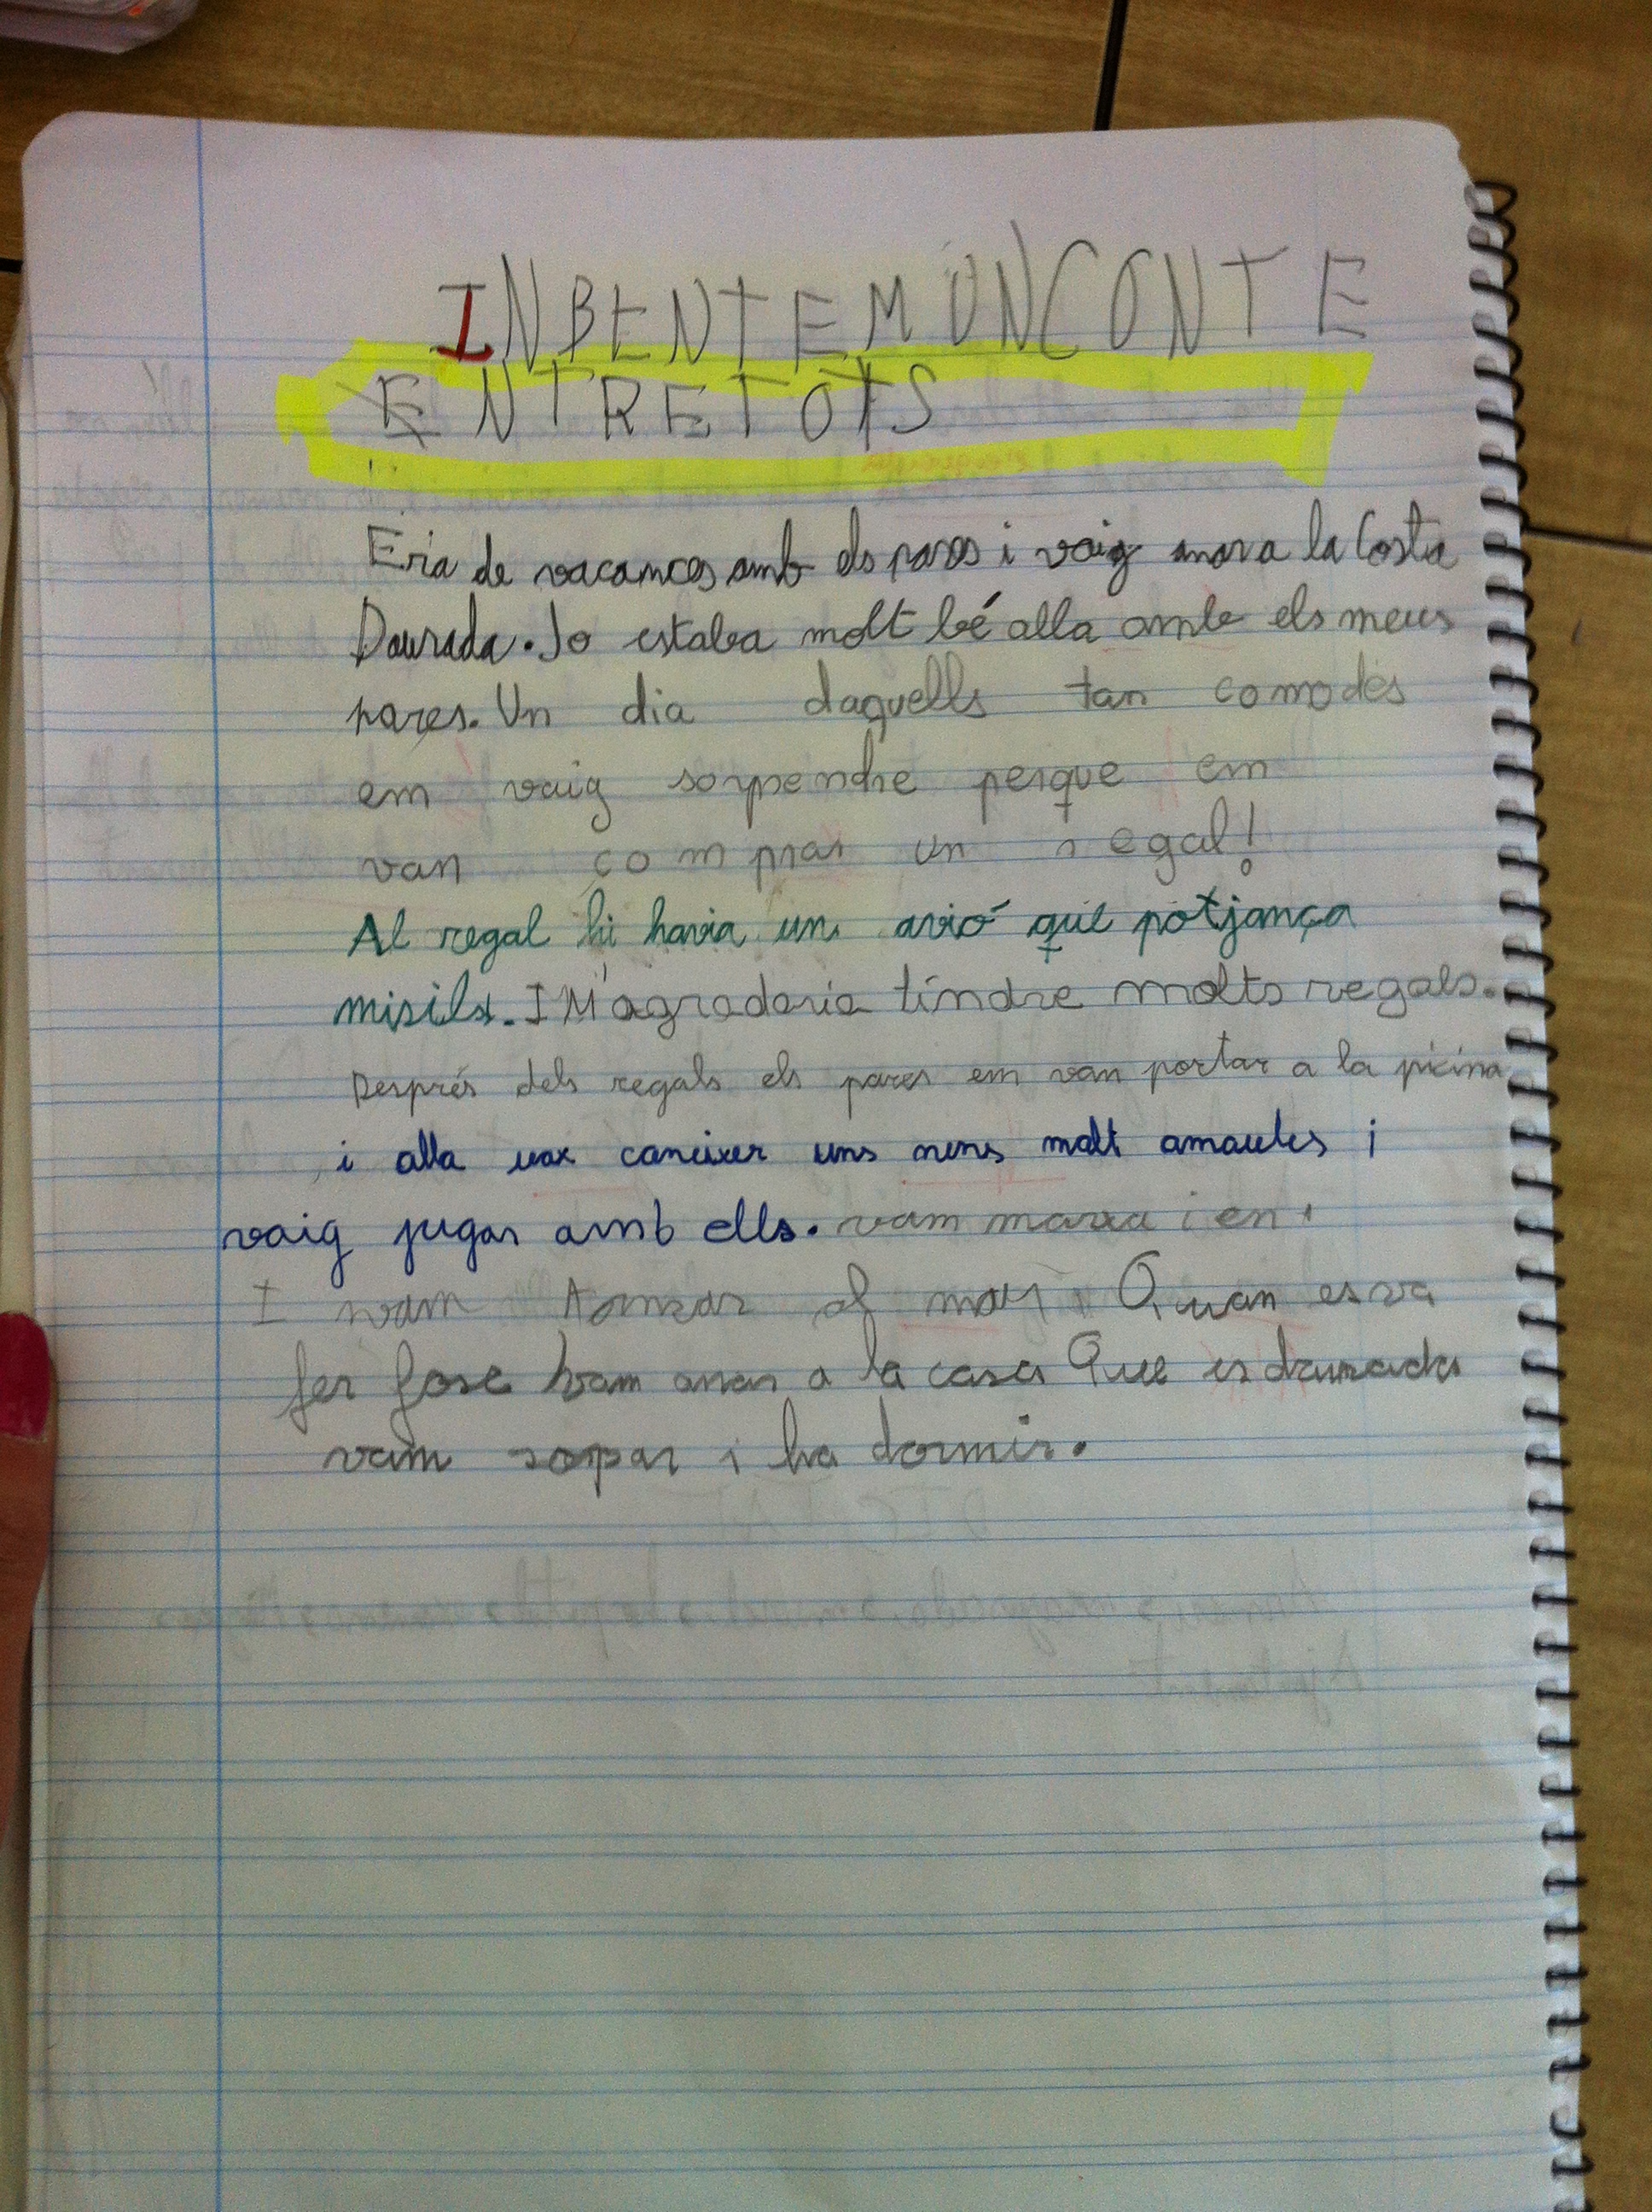 INBENTEM UN CONTE
ENTRE TOTS
Eria de vacances amb els pares i vaig anar a la Costa
Daurada. Jo estaba molt bé alla amb els meus
pares. Un dia daquells tan comodes
em vaig sorpendre perque em
van comprar un regal!
Al regal hi havia un avió que potjança
misils. I M'agradaria tindre molts regals.
Després dels regals els pares em van portar a la picina
i alla vax caneixer uns nens molt amables i
vaig jugar amb ells. vam marxa i en
I vam al mar Quan es va
fer fosc vam anar a la casa Que es
vam sopar i ha dormir.